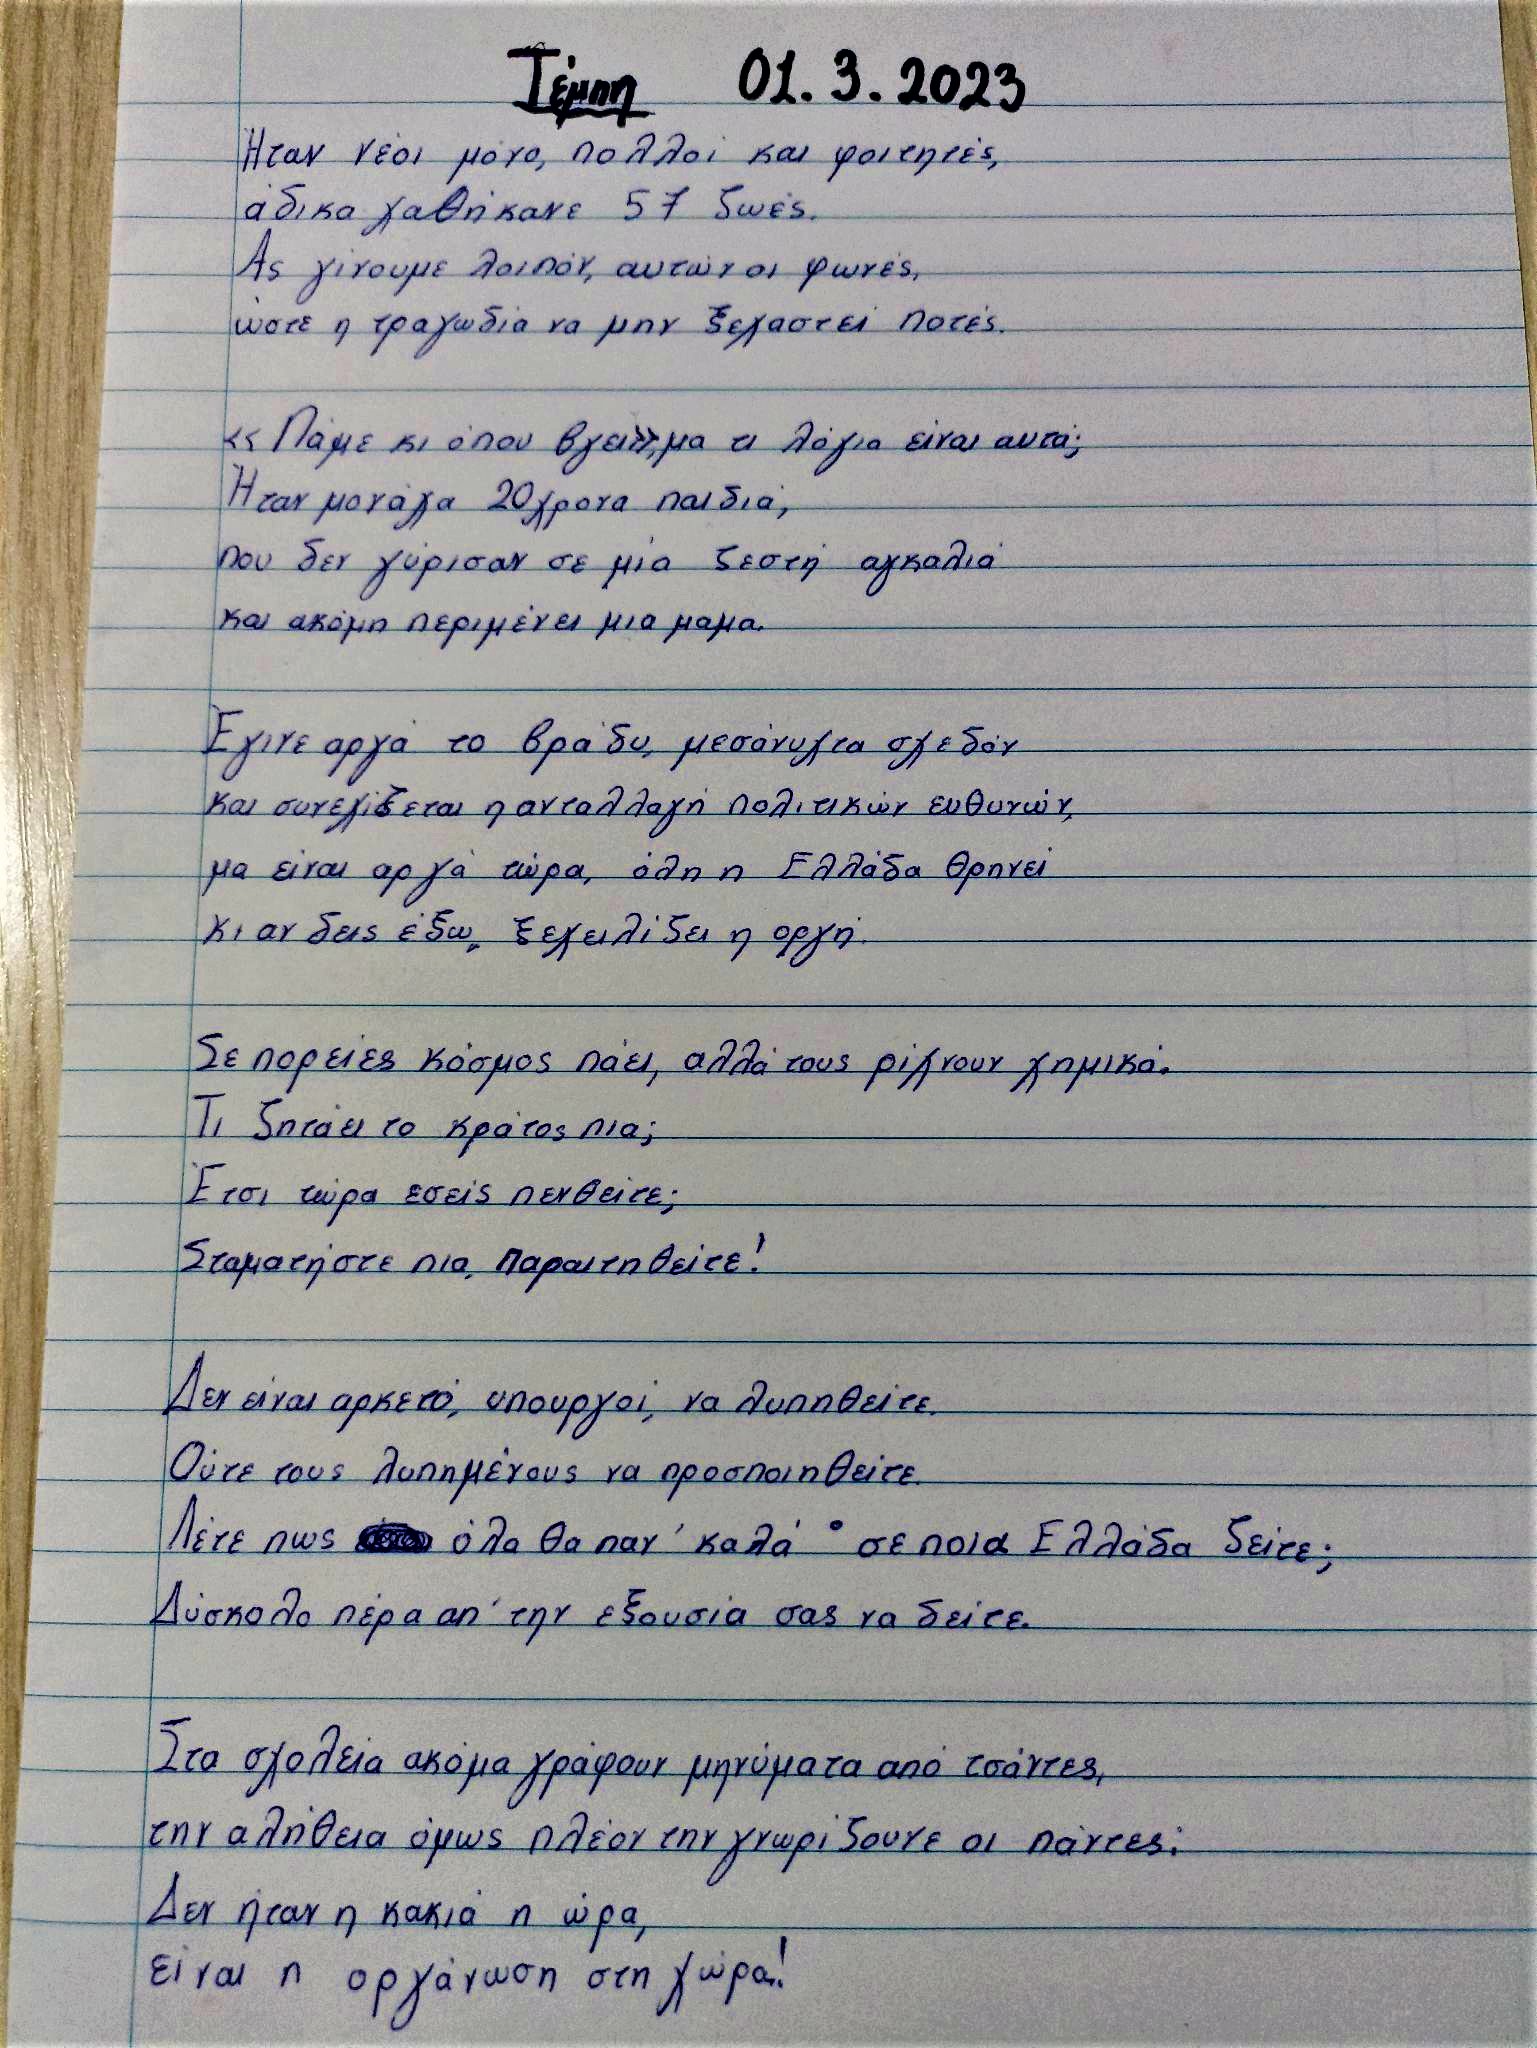 Τέμπη 01.3.2023
Ήταν νέοι μόνο, πολλοί και φοιτητές,
άδικα χαθήκανε 57 ζωές.
Ας γίνουμε λοιπόν, αυτών οι φωνές,
ώστε η τραγωδία να μην ξεχαστεί ποτές.
«Πάμε κι όπου βγει», μα τι λόγια είναι αυτά;
Ήταν μονάχα 20χρονα παιδιά,
που δεν γύρισαν σε μία ζεστή αγκαλιά
και ακόμη περιμένει μια μαμα.
Έγινε αργά το βράδυ, μεσάνυχτα σχεδόν
και συνεχίζεται η ανταλλαγή πολιτικών ευθυνών,
μα είναι αργά τώρα, όλη η Ελλάδα θρηνεί
κι αν δεις έξω, ξεχειλίζει η οργή.
Σε πορείες κόσμος πάει, αλλά τους ρίχνουν χημικά.
Τι ζητάει το κράτος πια;
Έτσι τώρα εσείς πενθείτε;
Σταματήστε πια, παραιτηθείτε!
Δεν είναι αρκετό, υπουργοί, να λυπηθείτε.
Ούτε τους λυπημένους να προσποιηθείτε.
Λέτε πως όλα θα παν' καλά· σε ποια Ελλάδα ζείτε;
Δύσκολο πέρα απ' την εξουσία σας να δείτε.
Στα σχολεία ακόμα γράφουν μηνύματα από τσάντες,
την αλήθεια όμως πλέον την γνωρίζουνε οι πάντες:
Δεν ήταν η κακιά η ώρα,
είναι η οργάνωση στη χώρα!